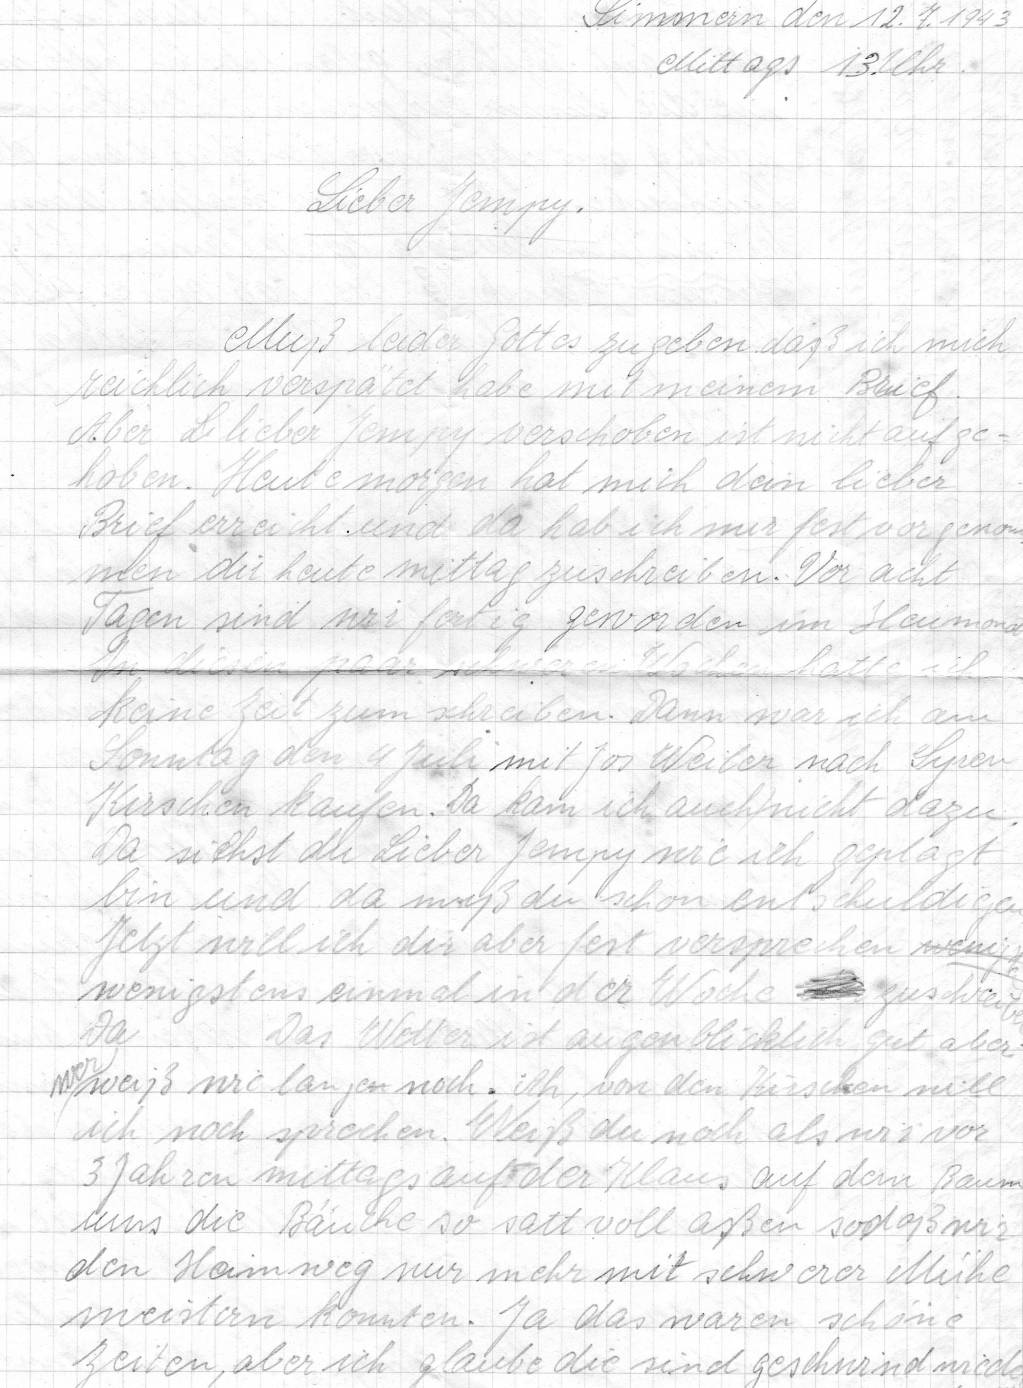 Simmern den 12.7.1943
Mittags 13.Uhr.
Lieber Jempy.
Muß leider Gottes zugeben daß ich mich
reichlich verspätet habe mit meinem Brief.
Aber lieber Jempy verschoben ist nicht aufge=
hoben. Heute morgen hat mich dein lieber
Brief erreicht und da hab ich mir fest vorgenom
men dir heute mittag zuschreiben. Vor acht
Tagen sind wir fertig geworden im Heumonat
In diesen paar schweren Wochen hatte ich
keine Zeit zum schreiben. Dann war ich am
Sonntag den 4 Juli mit Jos Weiler nach Syren
Kirschen kaufen. Da kam ich auch nicht dazu.
Da siehst du Lieber Jempy wie ich geplagt
bin und da mußdu schon entschuldigen
Jetzt will ich dir aber fest versprechen
wenigstens einmal in der Woche zuschreiben
Da Das Wetter ist augenblicklich gut aber
wer weiß wie langen noch. Ah, von den Kirschen will
ich noch sprechen. Weiß du noch als wir vor
3 Jahren mittags auf der Klaus auf dem Baum
uns die Bäuche so satt voll aßen sodaß wir
den Heimweg nur mehr mit schwerer Mühe
meistern konnten. Ja das waren schöne
Zeiten, aber ich glaube die sind geschwind wieder